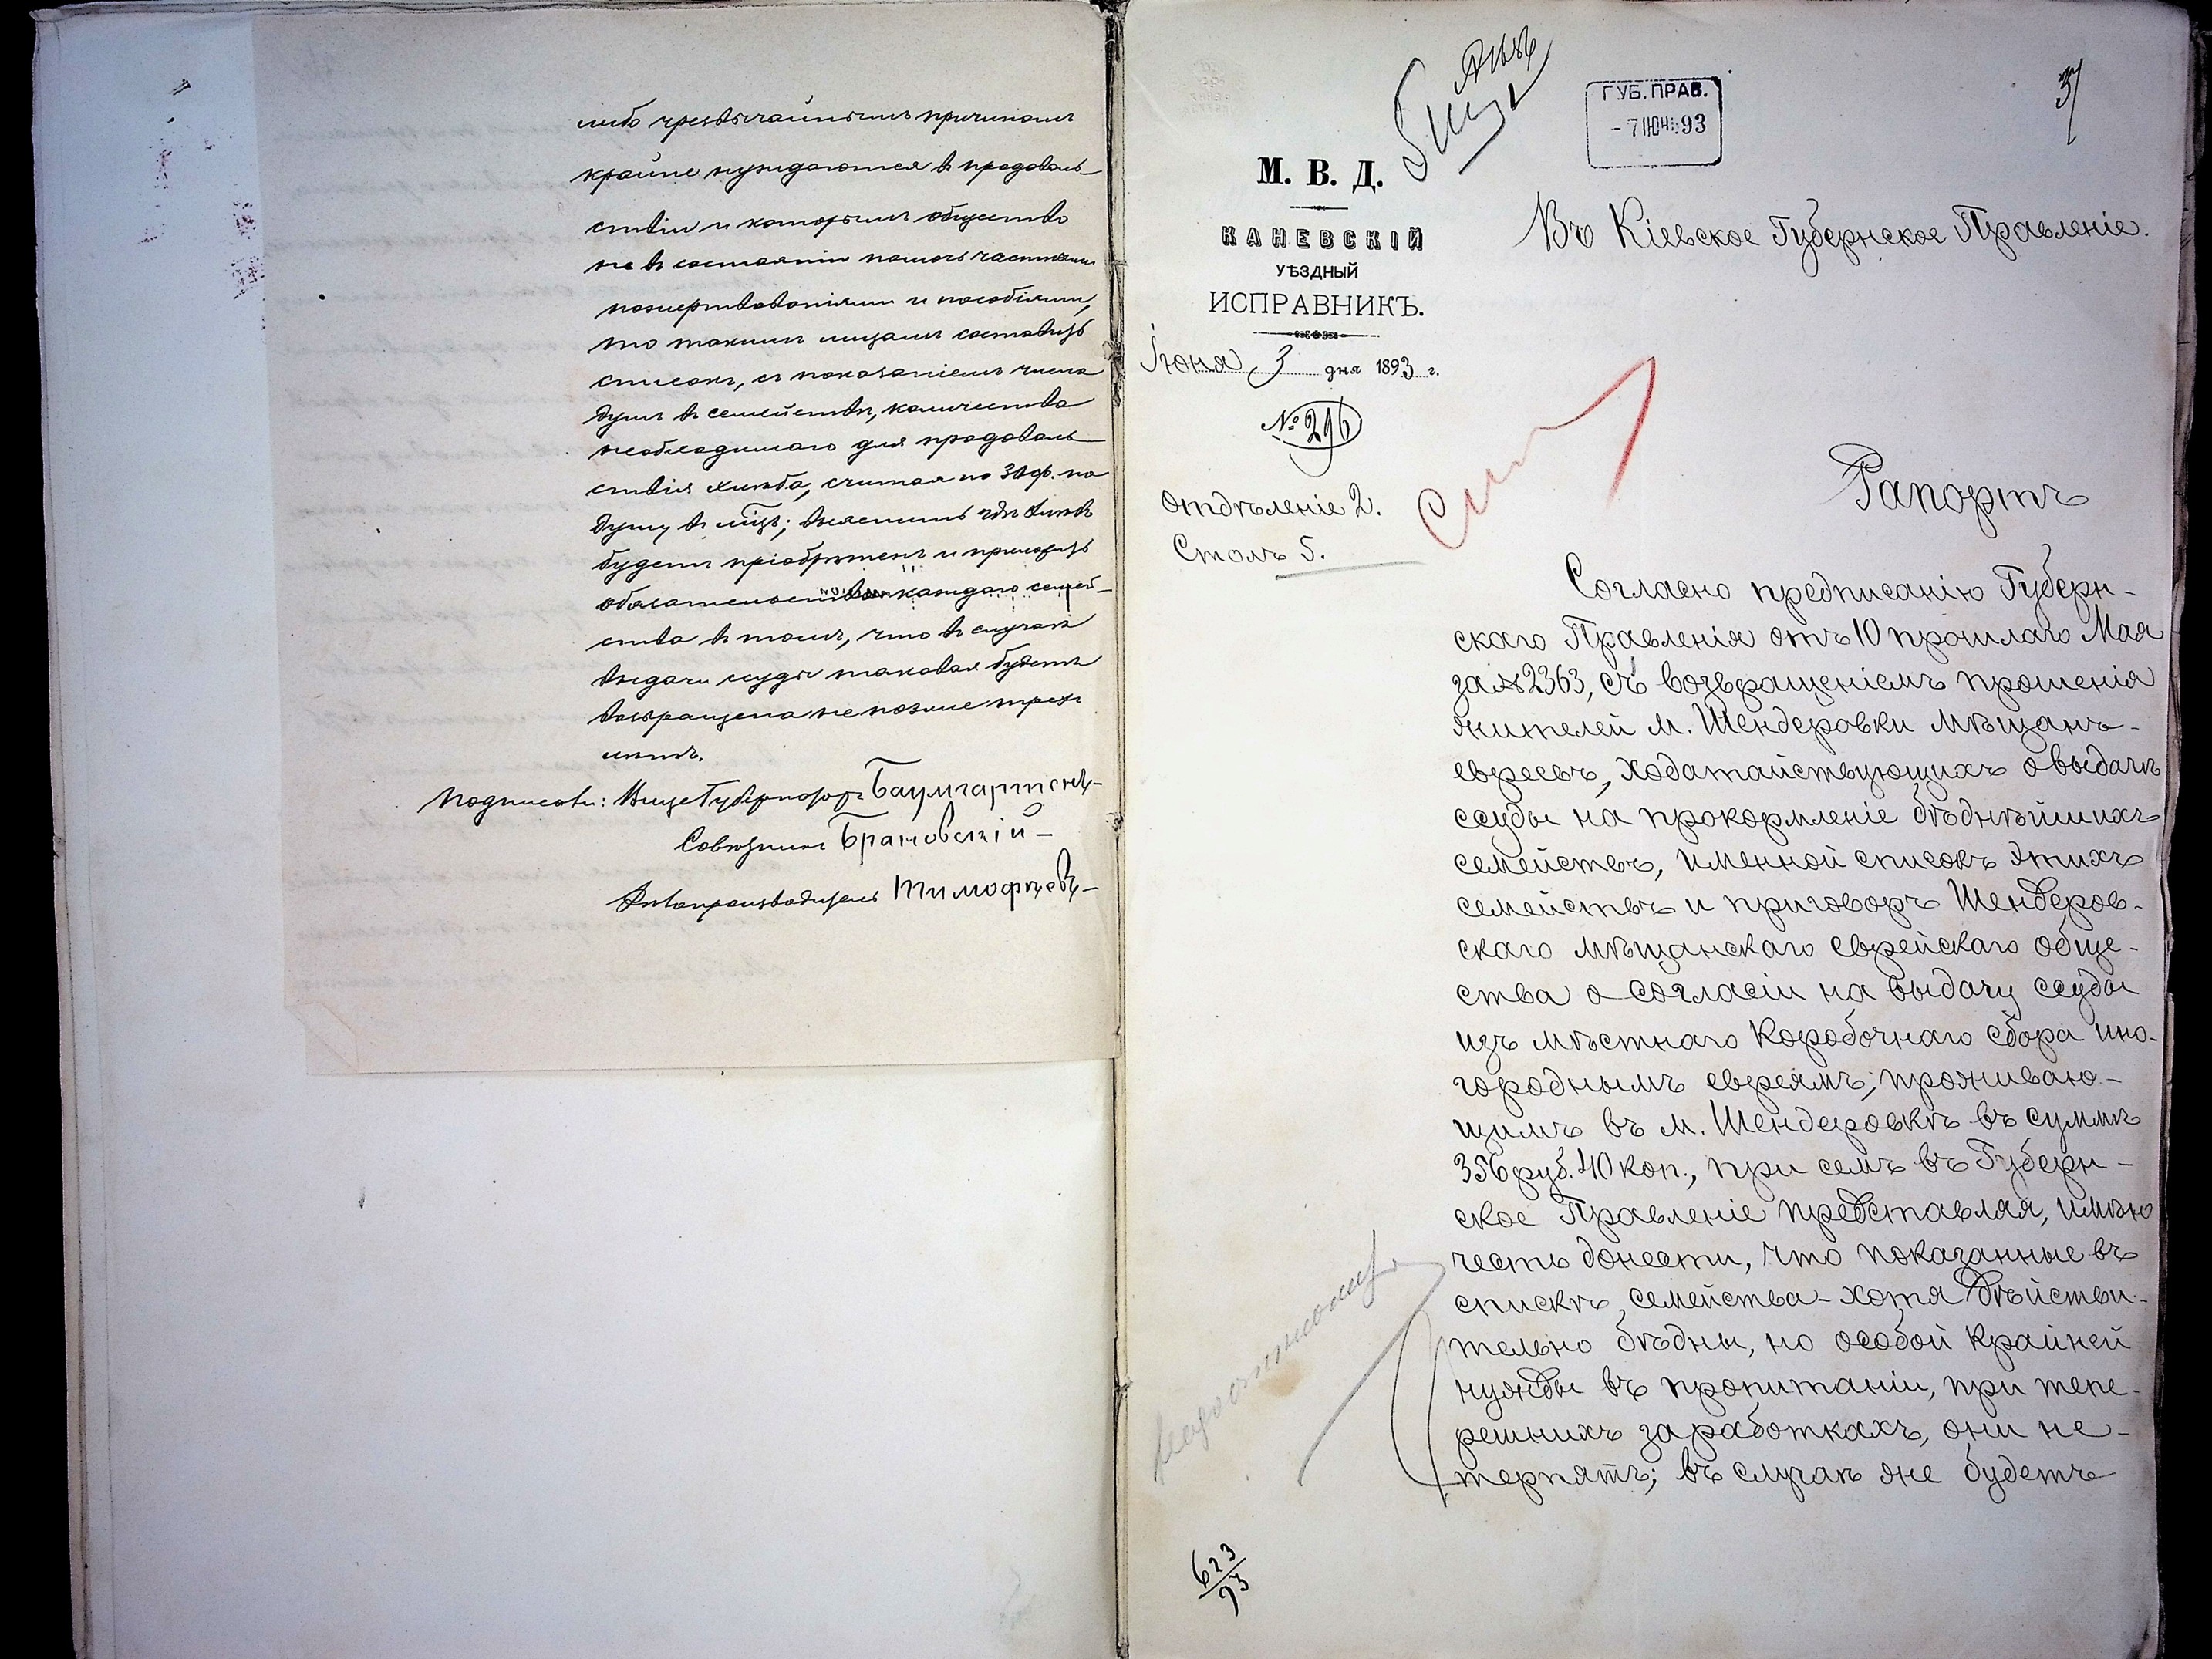 либо чрезвычайнымъ причинамъ
крайне нуждаются въ продоволь-
ствіи и которымъ общество
не въ состояніи помочь частными
пожертвованіями и пособіями,
то такимъ лицамъ составить
списокъ, съ показаніемъ числа
душъ въ семействѣ, количества
необходимаго для продоволь-
ствія хлѣба, считая по 30 ф. на
душу въ мѣц; выяснить гдѣ хлѣбъ
будетъ пріобрѣтенъ и приложить
обязательство каждаго семей-
ства въ томъ, что въ случаѣ
выдачи ссуды таковая будетъ
возвращена не позже трехъ
лѣтъ.
Подписали: Вице Губернаторъ Баумгартенъ-
Совѣтникъ Брановскій-
Дѣлопроизводитель Тимофѣевъ-
ГУБ. ПРАВ.
- 7 ІЮН. 93
37
М. В. Д.
КАНЕВСКІЙ
УѢЗДНЫЙ
ИСПРАВНИКЪ.
Іюня 3 дня 1893 г.
№ 296
Отдѣленіе 2.
Столъ 5.
Въ Кіевское Губернское Правленіе.
Рапортъ
Согласно предписанію Губерн-
скаго Правленія отъ 10 прошлаго Мая
за № 2363, съ возвращеніемъ прошенія
жителей м. Шендеровки мѣщанъ-
евреевъ, ходатайствующихъ о выдачѣ
ссуды на прокормленіе бѣднѣйшихъ
семействъ, именной списокъ этихъ
семействъ и приговоръ Шендеров-
скаго мѣщанскаго еврейскаго обще-
ства о согласіи на выдачу ссуды
изъ мѣстнаго Коробочнаго сбора ино-
городнымъ евреямъ, проживаю-
щимъ въ м. Шендеровкѣ въ суммѣ
356 руб. 40 коп., при семъ въ Губерн-
ское Правленіе представляя, имѣю
честь донести, что показанные въ
спискѣ семейства - хотя дѣйстви-
тельно бѣдны, но особой крайней
нужды въ пропитаніи, при тепе-
решнихъ заработкахъ, они не-
терпятъ; въ случаѣ же будетъ
623/93